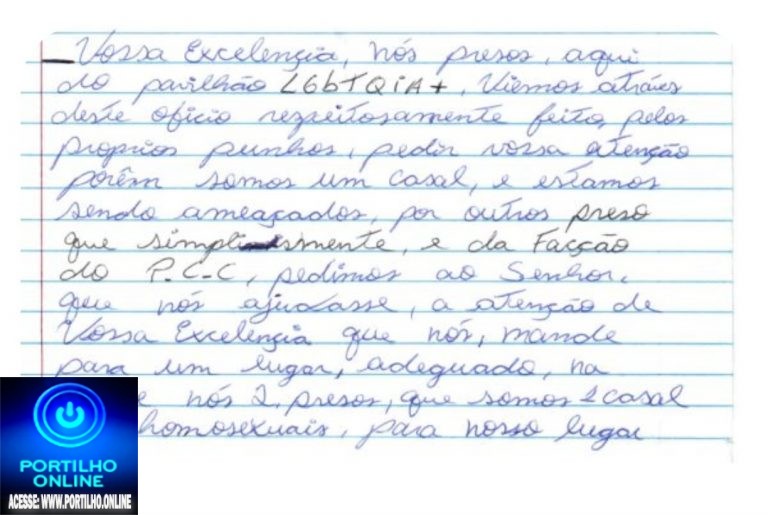 Vossa Excelençia, nós presos, aqui
do pavilhão LGbTQiA+, Viemos atráves
deste oficio respeitosamente feito, pelos
proprios punhos, pedir vossa atenção
porêm somos um casal, e estamos
sendo ameaçados, por outros preso
que simplismente, e da Facção
do P.C-C, pedimos ao Senhor,
que nós ajudasse, a atenção de
Vossa Excelençia que nós, mande
para um lugar, adequado, na
nós 2, presos, que somos 1 casal
homosexuais, para nosso lugar
PORTILHO
ONLINE
ACESSE: WWW.PORTILHO.ONLINE